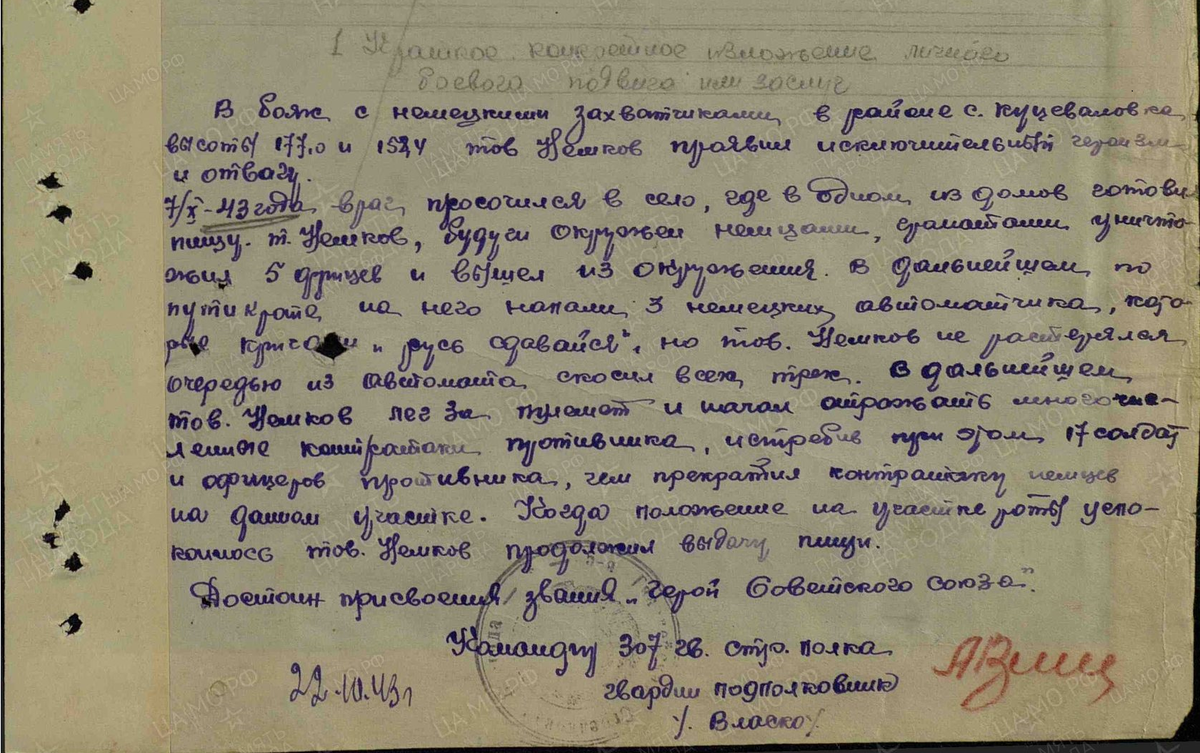 1 Краткое конкретное изложение личного
боевого подвига или заслуг
В боях с немецкими захватчиками в районе с. Куцеваловка,
высоты 177,0 и 152,4 тов Немков проявил исключительный героизм
и отвагу.
7/X-43 года враг просочился в село, где в одном из домов готовил
пищу. т. Немков, будучи окружен немцами, гранатами уничто-
жил 5 фрицев и вышел из окружения. В дальнейшем по
пути к роте на него напали 3 немецких автоматчика, кото-
рые кричали „русь сдавайся", но тов. Немков не растерялся
очередью из автомата скосил всех трех. В дальнейшем
тов. Немков лег за пулемет и начал отражать многочис-
ленные контратаки противника, истребив при этом 17 солдат
и офицеров противника, чем прекратил контратаку немцев
на данном участке. Когда положение на участке роты успо-
коилось тов. Немков продолжил выдачу пищи.
Достоин присвоения звания „Герой Советского Союза".
Командир 307 гв. стр. полка
22.10.43 г
гвардии подполковник
/. Власко/